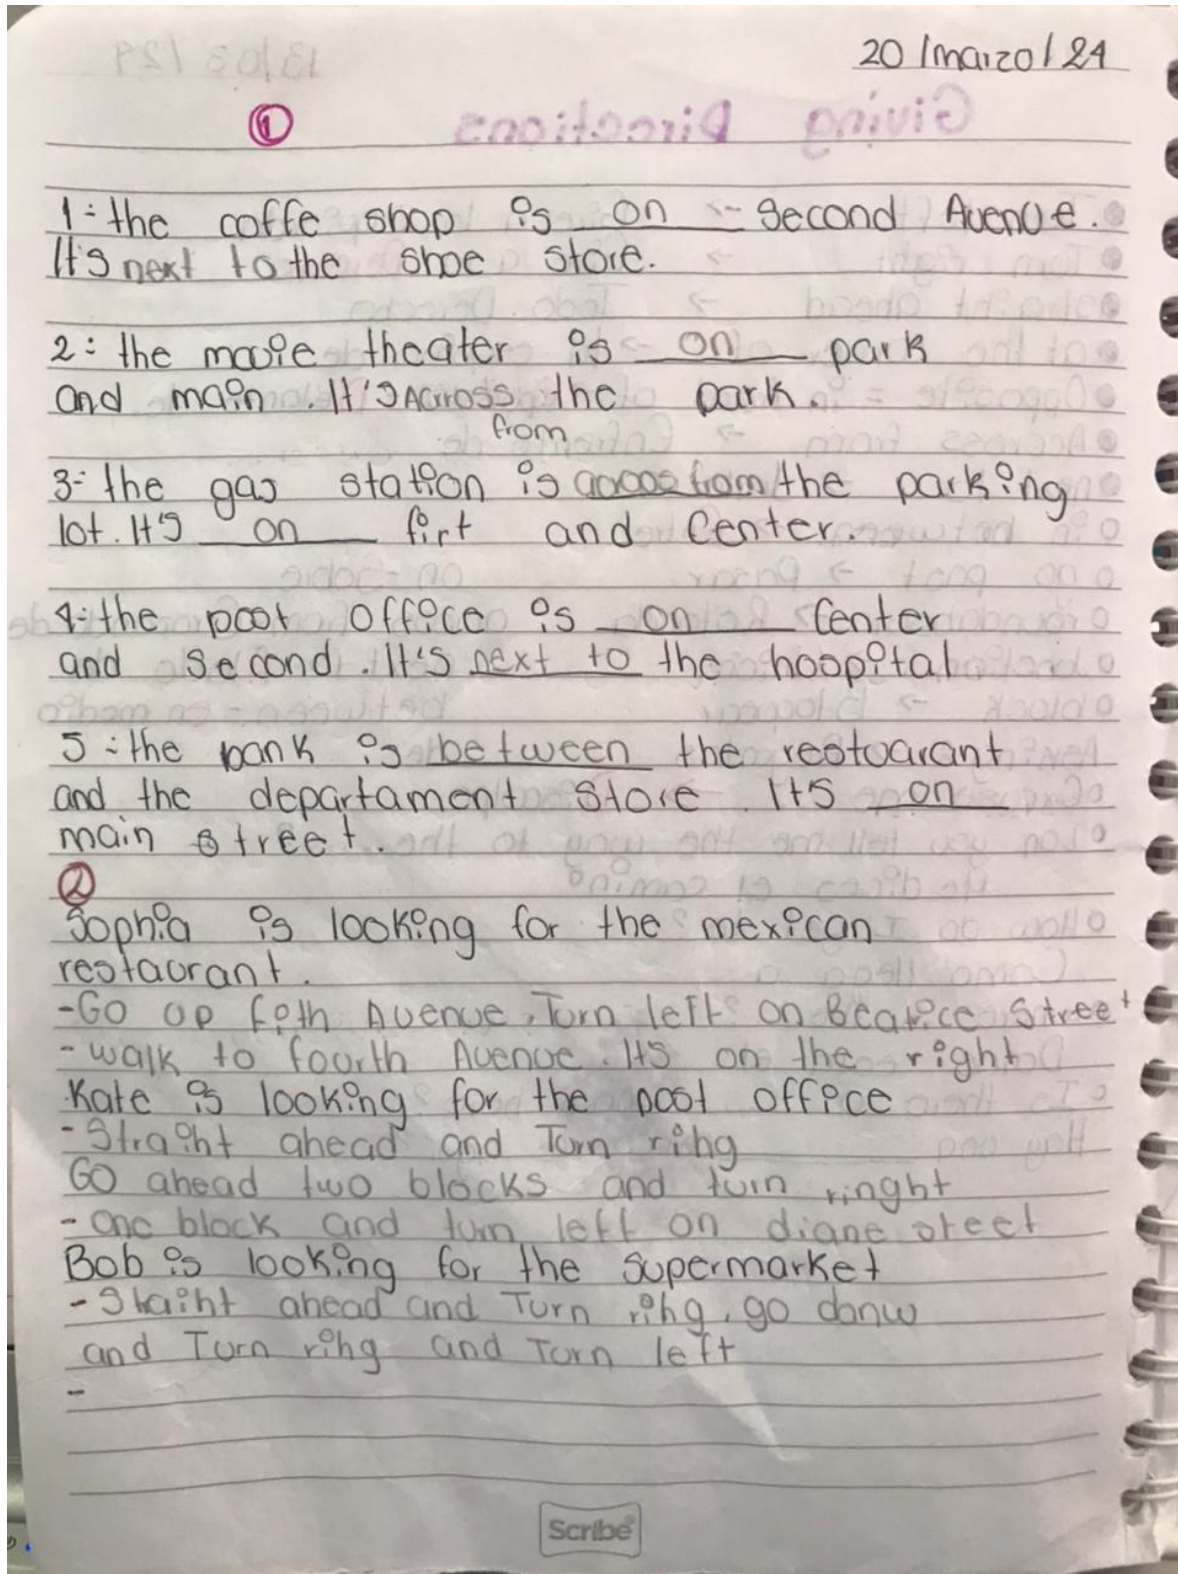 20/marzo/24
1
1: the coffe shop is on -- Second Avenue.
It's next to the shoe store.
2: the movie theater is on park
and main. It's Across the park.
from
3: the gas station is across from the parking
lot. It's on firt and Center.
4: the post office is on Center
and second. It's next to the hospital
5: the bank is between the restuarant
and the departament store. Its on
main street.
2
Sophia is looking for the mexican
restaurant.
-Go up fith Avenue. Turn left on Beatrice Street
-walk to fourth Avenue. Its on the right
Kate is looking for the post office
-Straiht ahead and Turn rihg
GO ahead two blocks and turn ringht
-one block and turn left on diane steet
Bob is looking for the supermarket
-Staiht ahead and Turn rihg, go donw
and Turn rihg and Turn left
-
Scribe